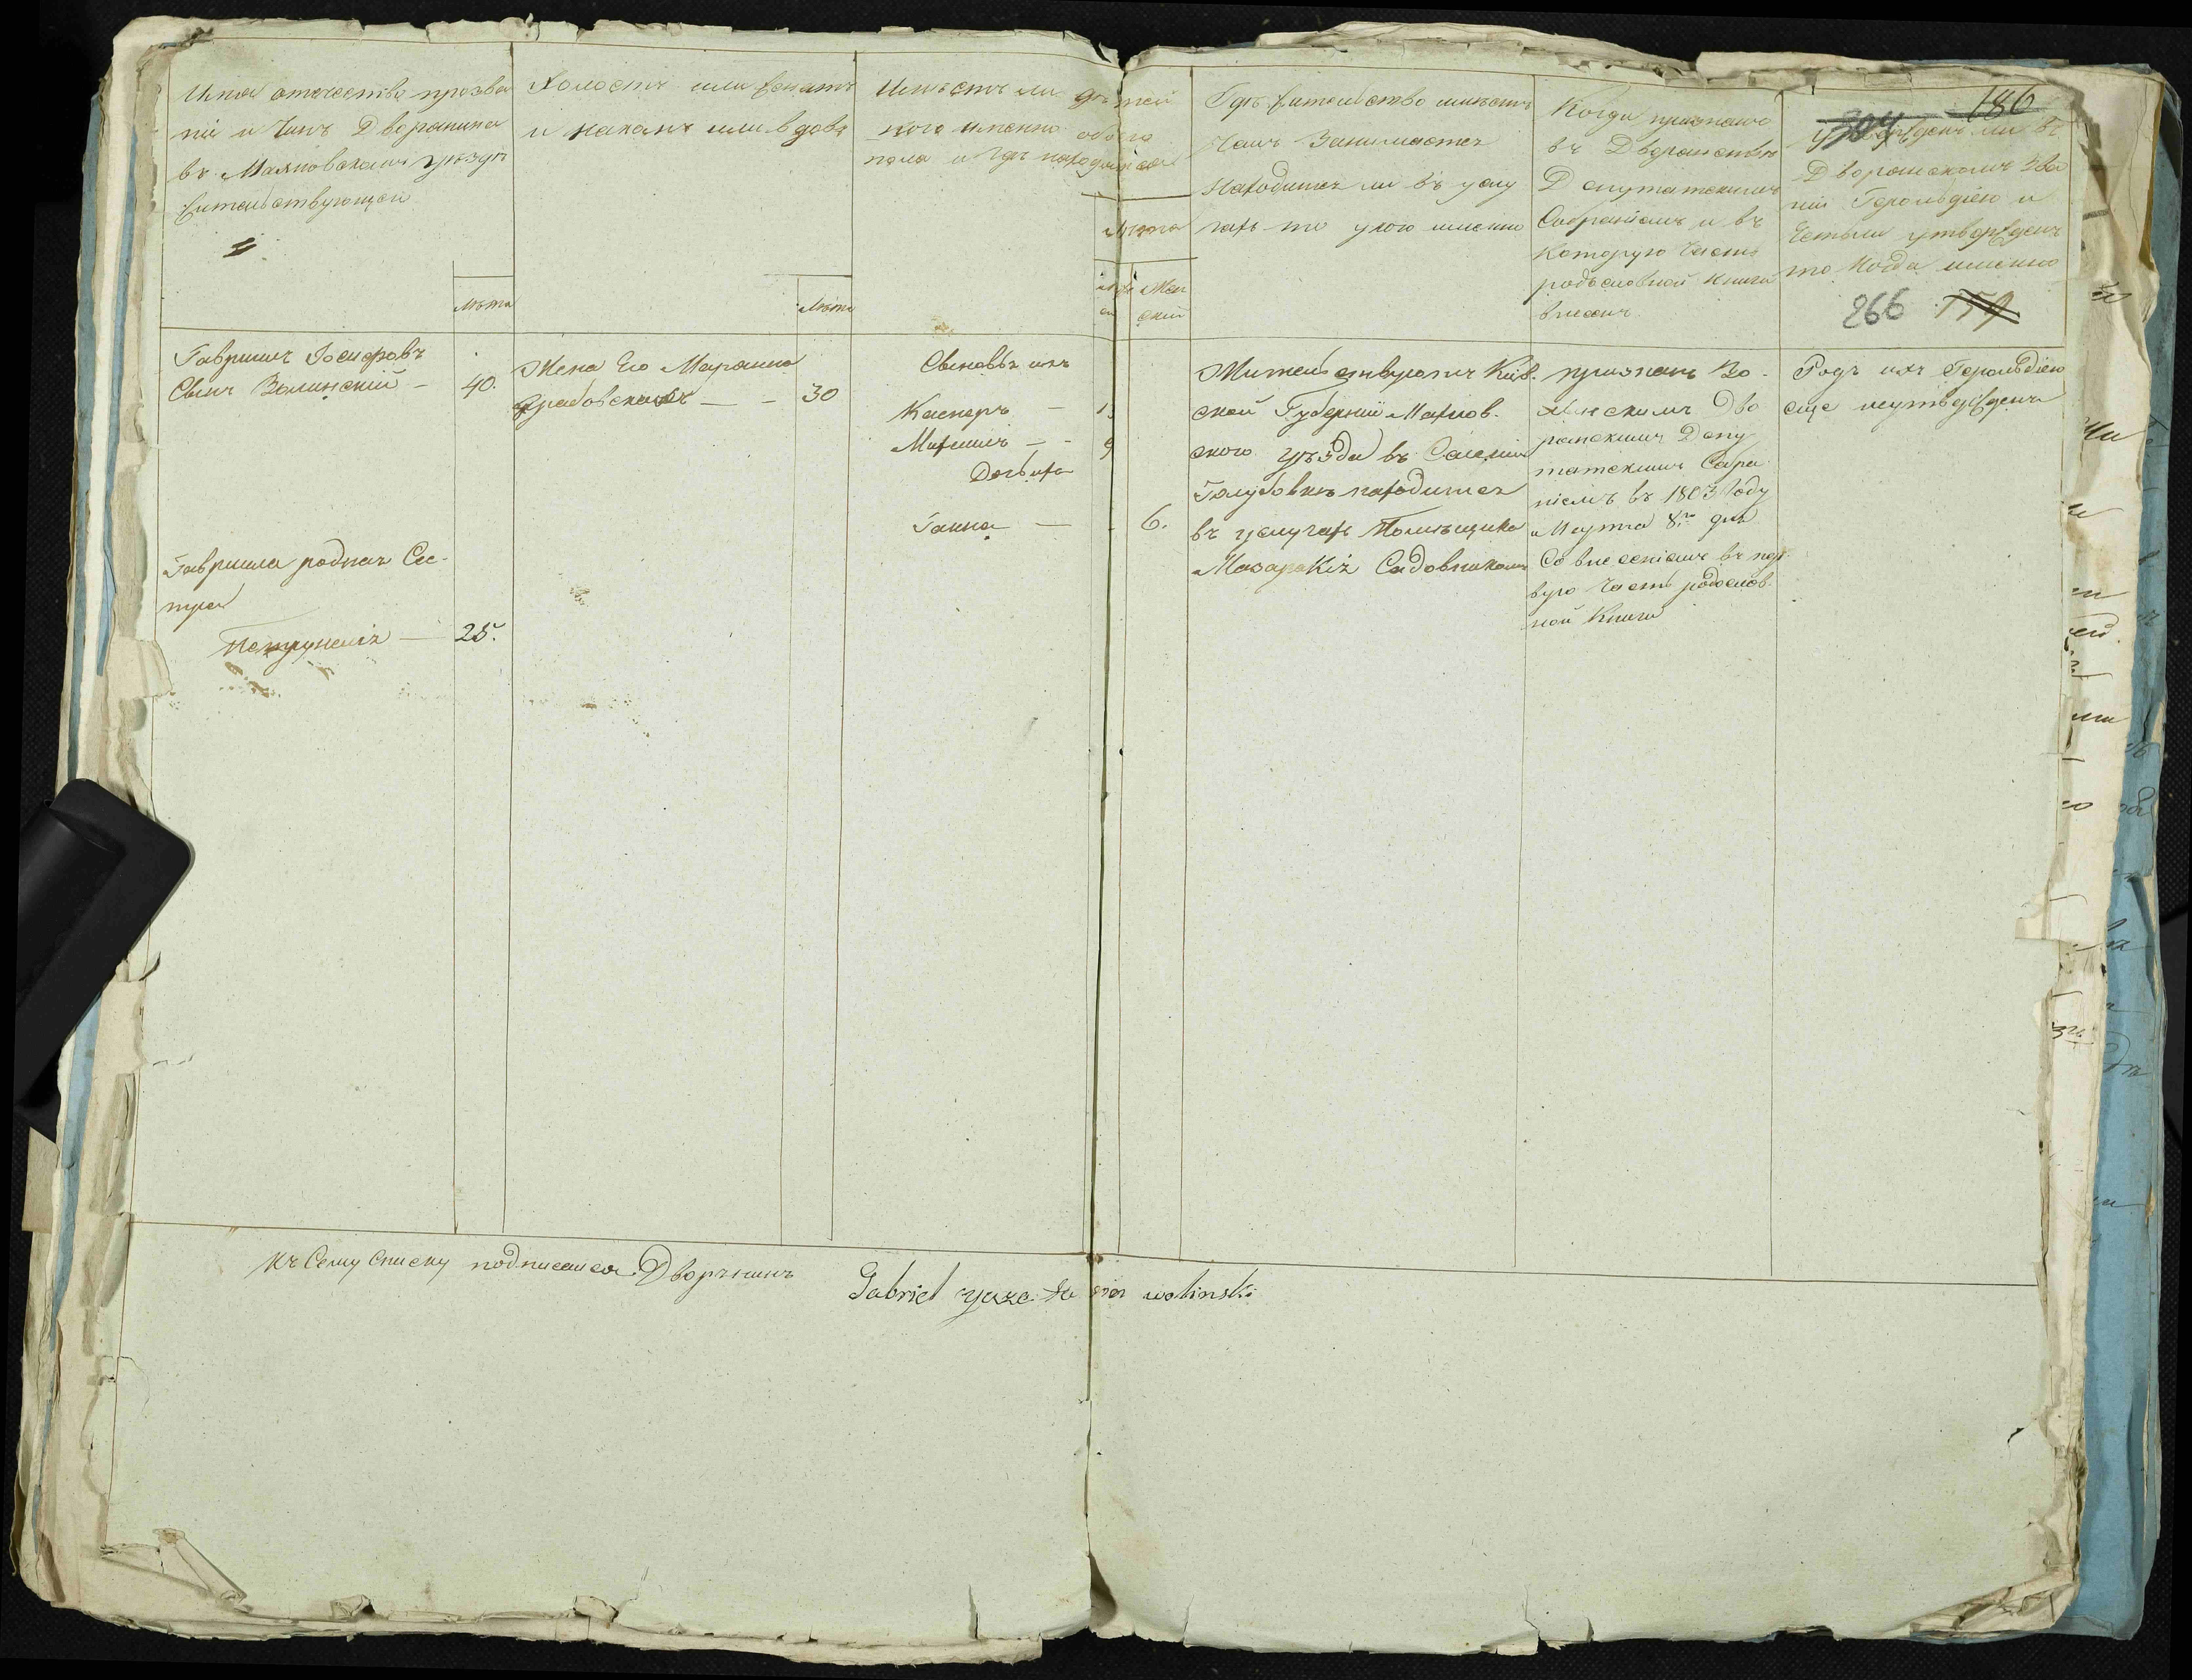 Имя отечество прозва
ніе и Чинъ Дворянина
въ Махновскомъ уѣздѣ
жительствующей
лѣта
Холостъ или женатъ
и накомъ или вдовъ
лѣта
Имѣетъ ли дѣтей
кого имянно обоего
пола и гдѣ находятся
лѣта
Жен
ской
Гдѣ жительство имѣетъ
чемъ Занимается
находится ли въ услу
гахъ то укого именно
Когда признанъ
въ Дворянствѣ
Депутатскимъ
Собраніемъ и въ
которую Часть
родословной книги
внесенъ
186
304
утвержденъ ли въ
Дворянскомъ Зва
ніи Герольдіею и
Естьли утвержденъ
то когда именно
266 159
Гавриилъ Іосифовъ
Сынъ Волинский — 40.
Жена Его Маріанна
Грабовская — — 30
Сыновья ихъ
Касперъ —
Михаилъ — - 9
Дочь ихъ
Ганна — 6.
Жительствуетъ Кіев-
ской Губерніи Махнов-
ского уѣзда въ Селеніи
Голубовкѣ находится
въ услугахъ Помѣщика
Мазаракія Садовникомъ
признанъ Во-
лынскимъ Дво
рянскимъ Депу
татскимъ Собра
ніемъ въ 1803 году
Марта 8го дня
Со внесеніемъ въ пер
вую Часть родослов-
ной Книги
Родъ ихъ Герольдіею
еще неутвержденъ
Гавриила родная Сес-
тра
Петрунеля — 25.
Къ Сему Списку подписался Дворянинъ
Gabriel syn wolinski